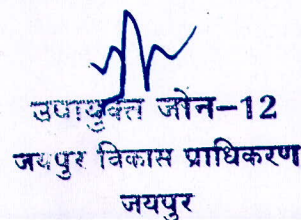 उपायुक्त जोन-12
जयपुर विकास प्राधिकरण
जयपुर